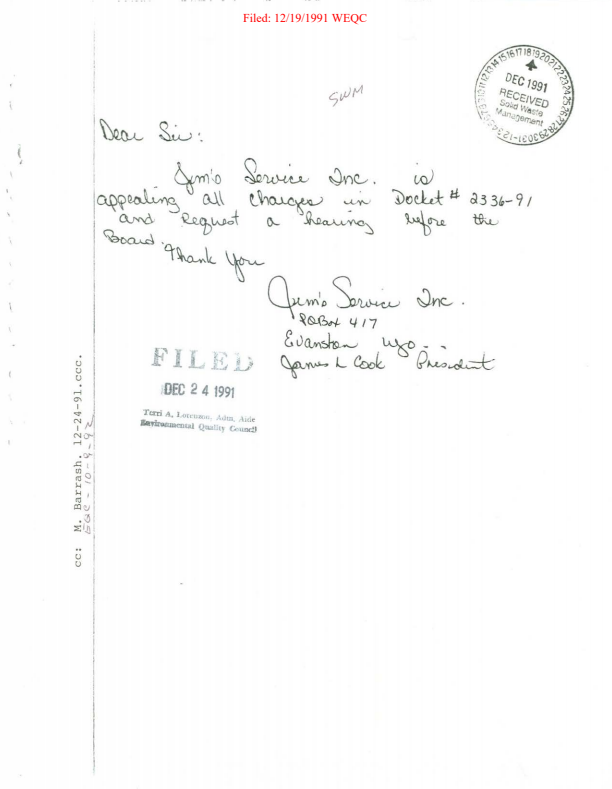 Filed: 12/19/1991 WEQC
SWM
DEC 1991
RECEIVED
Solid Waste
Management
Dear Sir:
Jim's Service Inc. is
appealing all charges in Docket # 2336-91
and Request a hearing before the
Board.
Thank You
Jim's Service Inc.
P.O Box 417
Evanston Wyo..
James L Cook President
FILED
DEC 24 1991
Terri A. Lorenzon, Adm. Aide
Environmental Quality Council
cc: M. Barrash, 12-24-91.ccc.